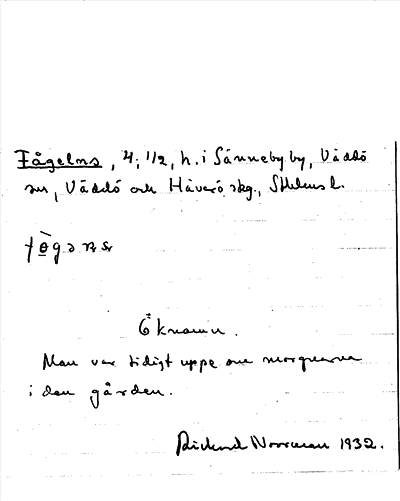 Fågelns, 4; 1/2, h. i Sänneby by, Väddö
sn, Väddö och Häverö skg., Sthlms l.
Öknamn.
Man var tidigt uppe om morgnarna
i den gården.
Rickard Norrman 1932.